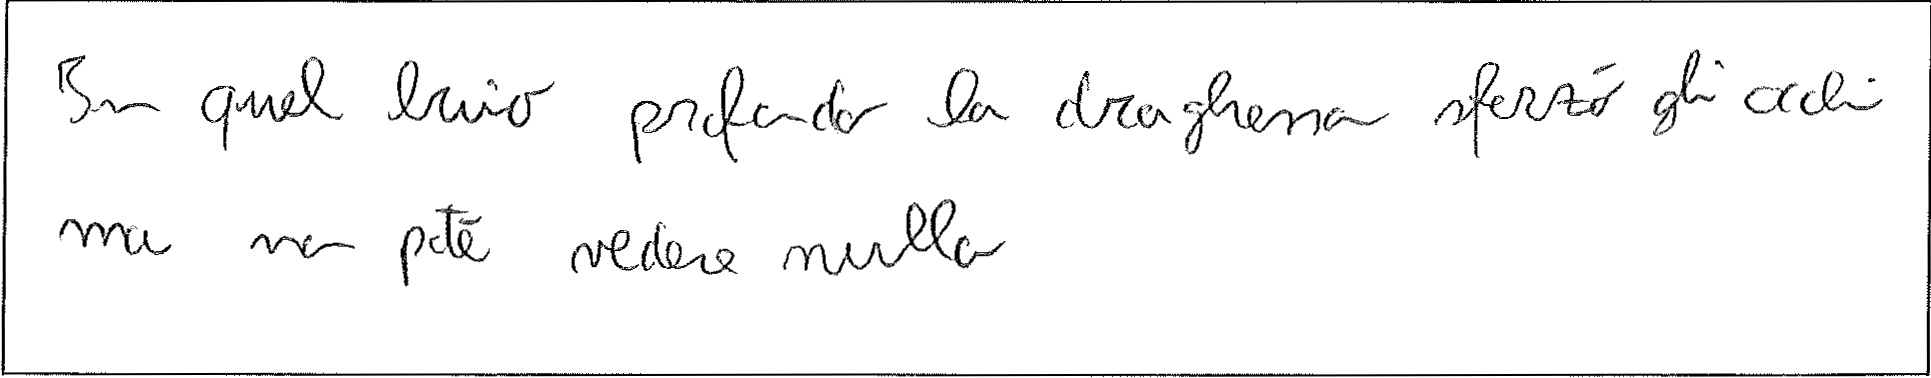 In quel buio profondo la draghessa sferzò gli occhi
ma non poté vedere nulla